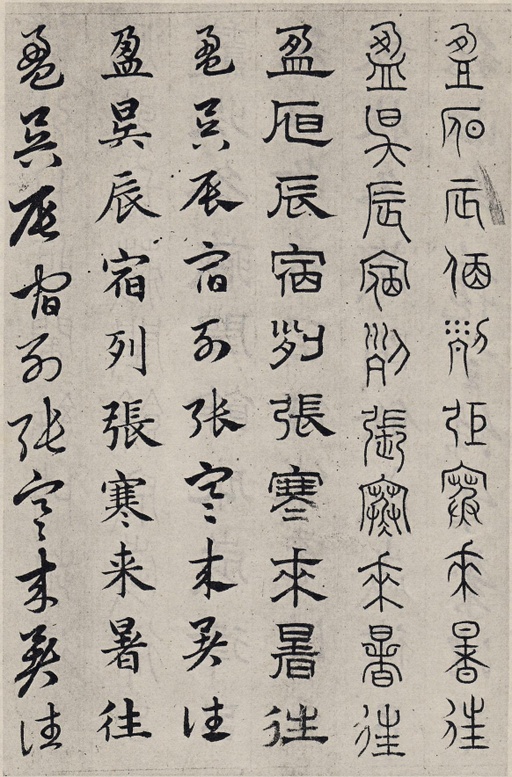 盈昃辰宿列張寒來暑往
盈昃辰宿列張寒來暑往
盈昃辰宿列張寒來暑往
盈昃辰宿列張寒來暑往
盈昃辰宿列張寒来暑往
盈昃辰宿列張寒來暑往